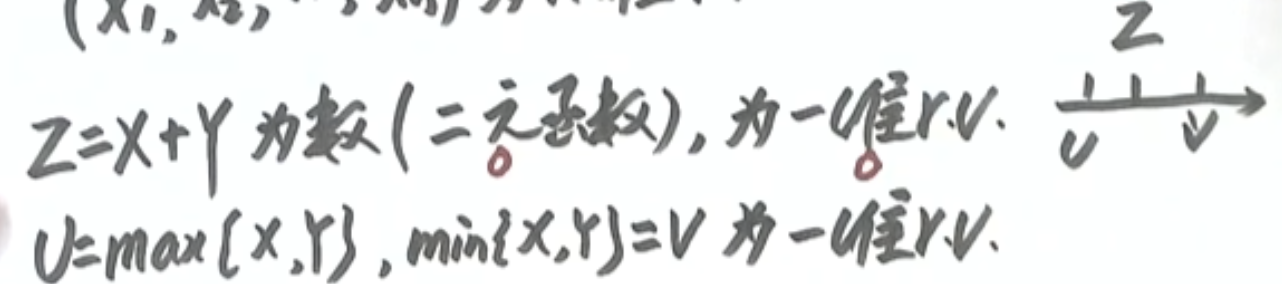 (X1, X2,
Z
Z=X+Y 为数(二元函数), 为一维r.v.
U V
U=max{X,Y}, min{X,Y}=V 为一维r.v.